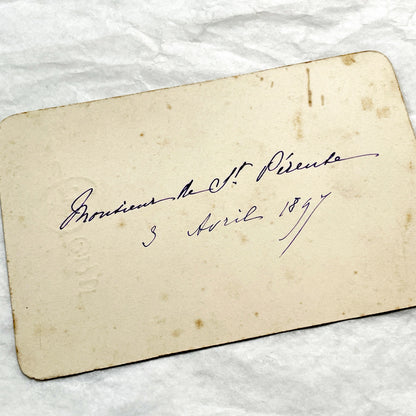 Monsieur de St Péreuse
3 Avril 1897